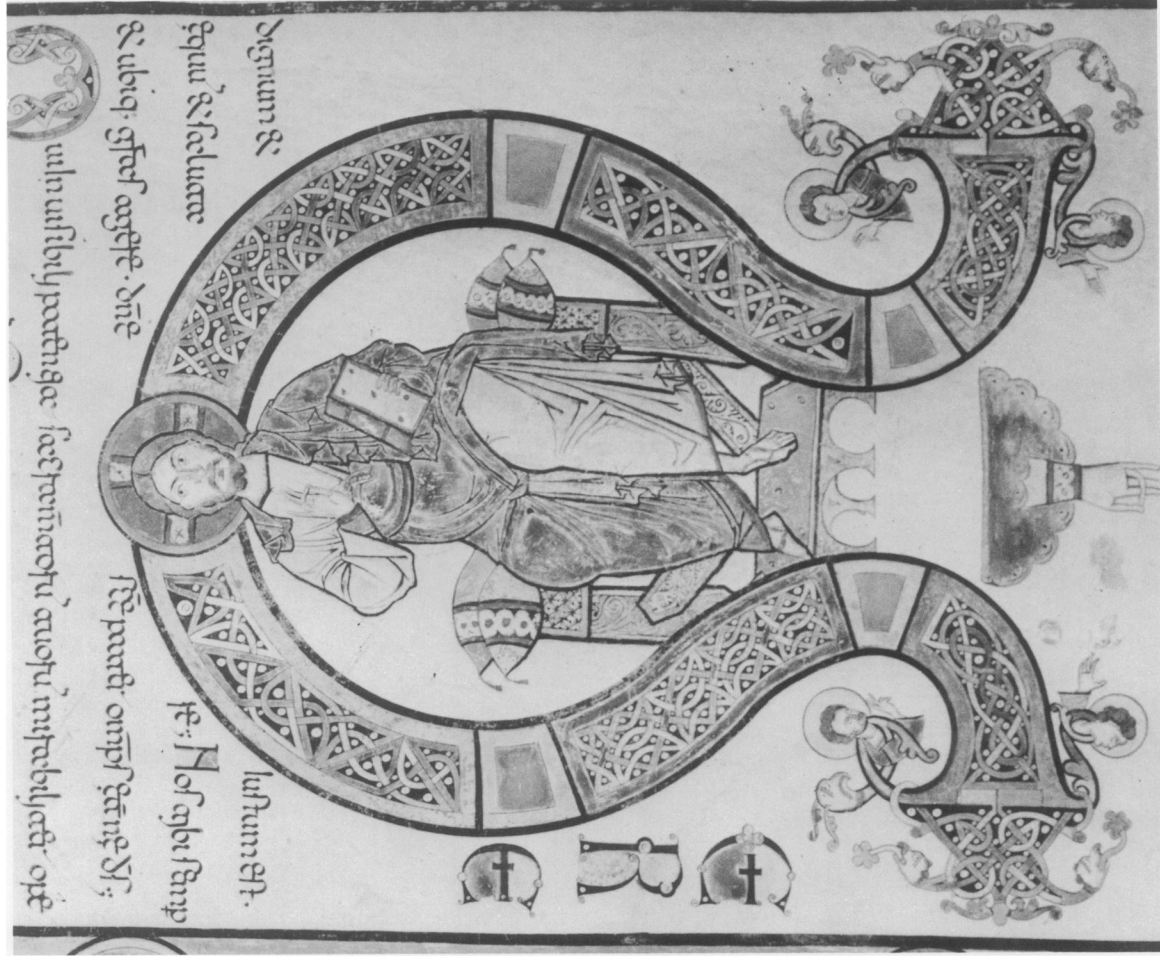 ERE
dignum & iustum est.
equū & saluta re; Nos tibi semp
& ubiq; gras agere. dn̄e sc̄e pater omps etne ds;
Qui inuisibili potentia sacramtorū tuorū mirabiliter ope